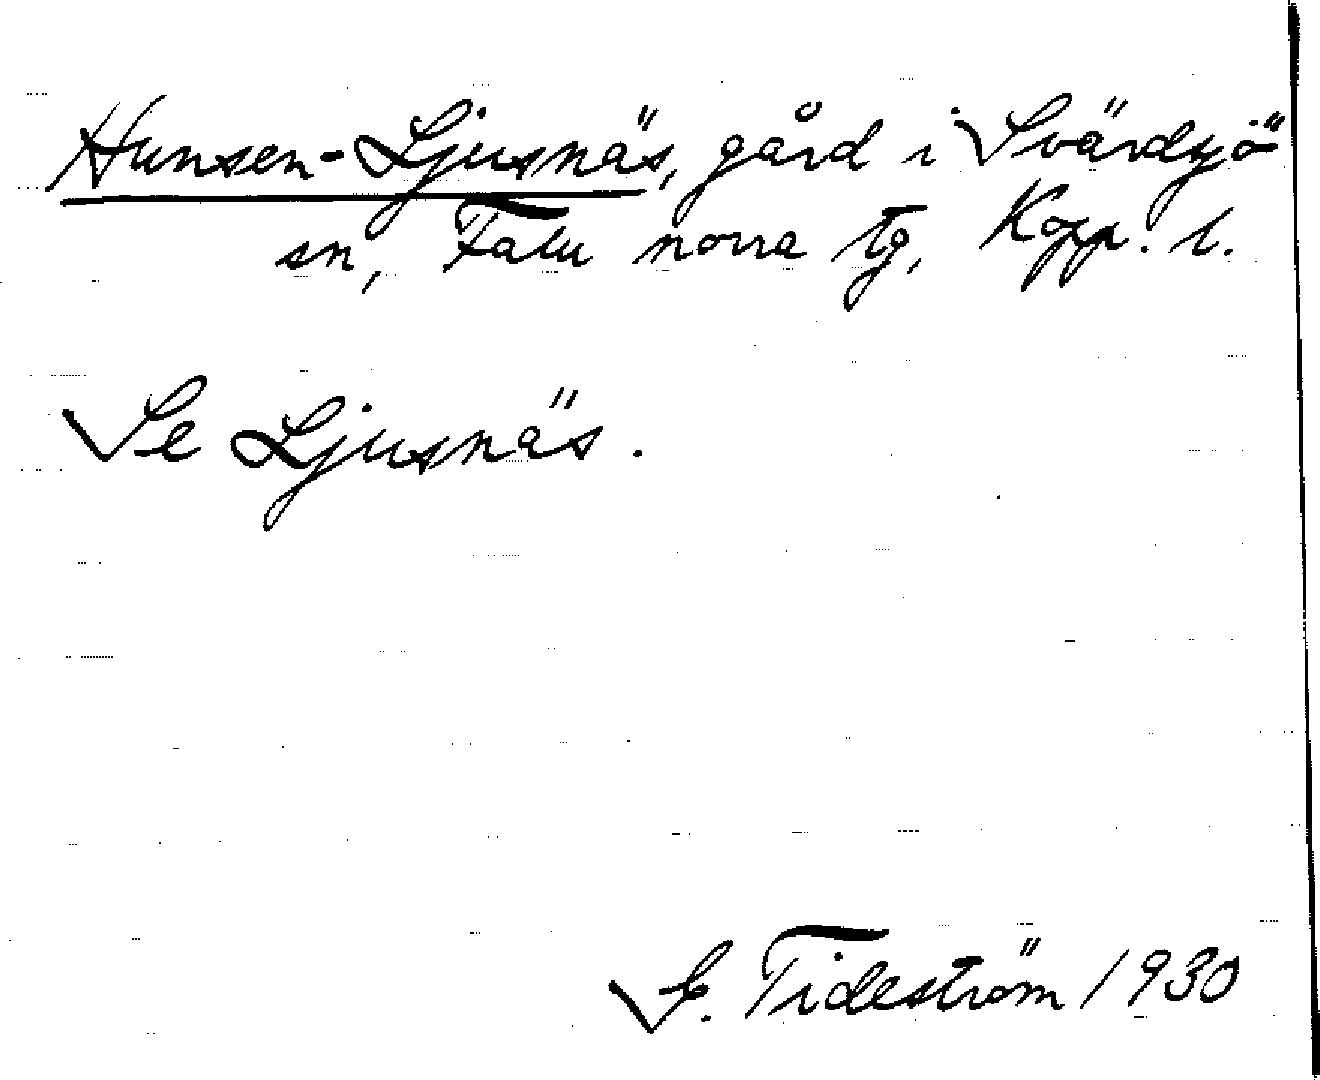 Hunsen-Ljusnäs, gård i Svärdsjö
sn, Falu norra tg, Kopp. l.
Se Ljusnäs.
G. Tideström 1930